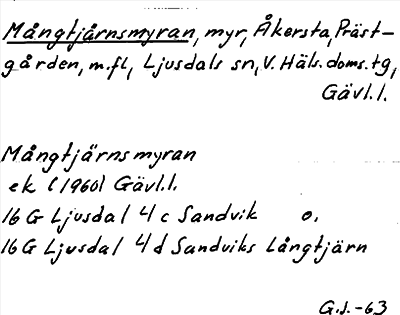 Mångtjårnsmyran, myr, Åkersta, Präst-
gården, m.fl, Ljusdals sn, V. Häls. doms. tg,
Gävl.l.
Mångtjärnsmyran
ek (1960) Gävl.l.
16 G Ljusdal 4 c Sandvik o.
16 G Ljusdal 4 d Sandviks Långtjärn
G.J.-63